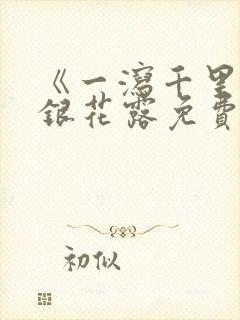 《一瀉千里
銀花露免費
初似